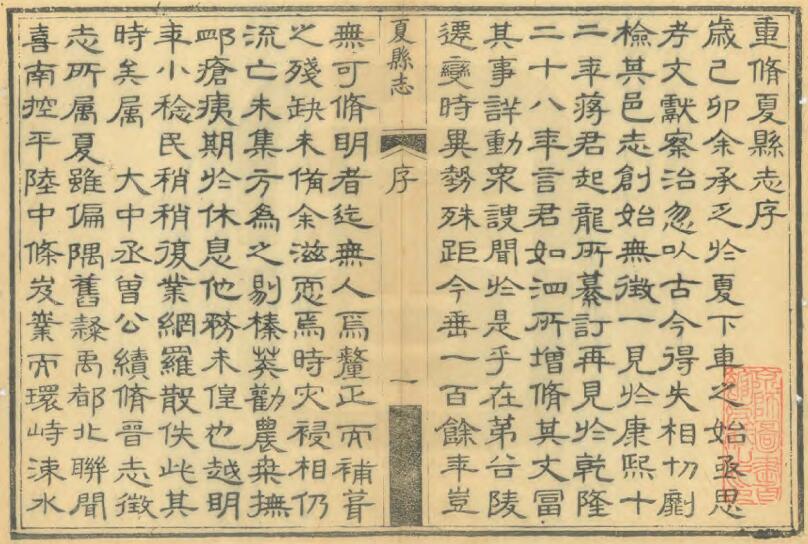 重脩夏縣志序
歲己卯余承乏於夏下車之始亟思
考文獻察治忽以古今得失相切劘
檢其邑志創始無徵一見於康熙十
二年蔣君起龍所纂訂再見於乾隆
二十八年言君如泗所增脩其文富
其事詳動衆謏聞於是乎在第谷陵
遷變時異勢殊距今垂一百餘年豈
夏縣志
序
一
無可脩明者迄無人焉釐正而補葺
之殘缺未備余滋恧焉時灾祲相仍
流亡未集方為之剔榛莽勸農桒撫
卹瘡痍期於休息他務未遑也越明
年小稔民稍稍復業網羅散佚此其
時矣属　大中丞曾公續脩晉志徵
志所属夏雖偏隅舊隸禹都北聯聞
喜南控平陸中條岌業而環峙涑水
京師圖書
館收藏之印